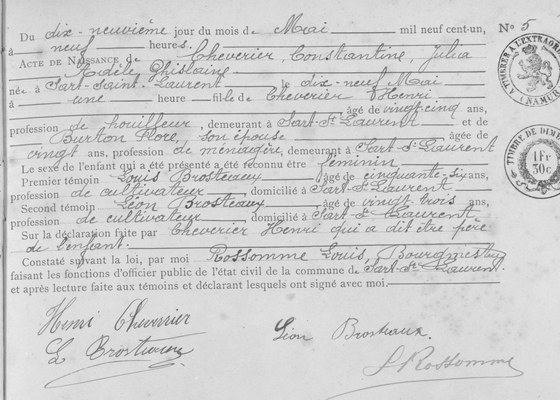 Du dix-neuvième jour du mois de Mai mil neuf cent-un, N° 5
à neuf heures.
ACTE DE NAISSANCE de Cheverier, Constantine, Julia
Adèle Ghislaine
née à Sart-Saint-Laurent le dix-neuf Mai
à une heure fille de Cheverier Henri
âgé de vingt-cinq ans,
profession de houilleur, demeurant à Sart-St-Laurent et de
Burton Flore, son épouse âgée de
vingt ans, profession de ménagère, demeurant à Sart-St-Laurent
Le sexe de l'enfant qui a été présenté a été reconnu être féminin
Premier témoin Louis Brosteaux âgé de cinquante-six ans,
profession de cultivateur, domicilié à Sart-St-Laurent
Second témoin Léon Brosteaux âgé de vingt-trois ans,
profession de cultivateur, domicilié à Sart-St-Laurent
Sur la déclaration faite par Cheverier Henri qui a dit être père
de l'enfant.
Constaté suivant la loi, par moi Rossomme Louis, Bourgmestre
faisant les fonctions d'officier public de l'état civil de la commune de Sart-St-Laurent.
et après lecture faite aux témoins et déclarant lesquels ont signé avec moi.
TIMBRE A L'EXTRAORD
NAMUR
TIMBRE DE DIM
1 Fr
30c
Henri
L Brosteaux
Léon Brosteaux.
L Rossomme